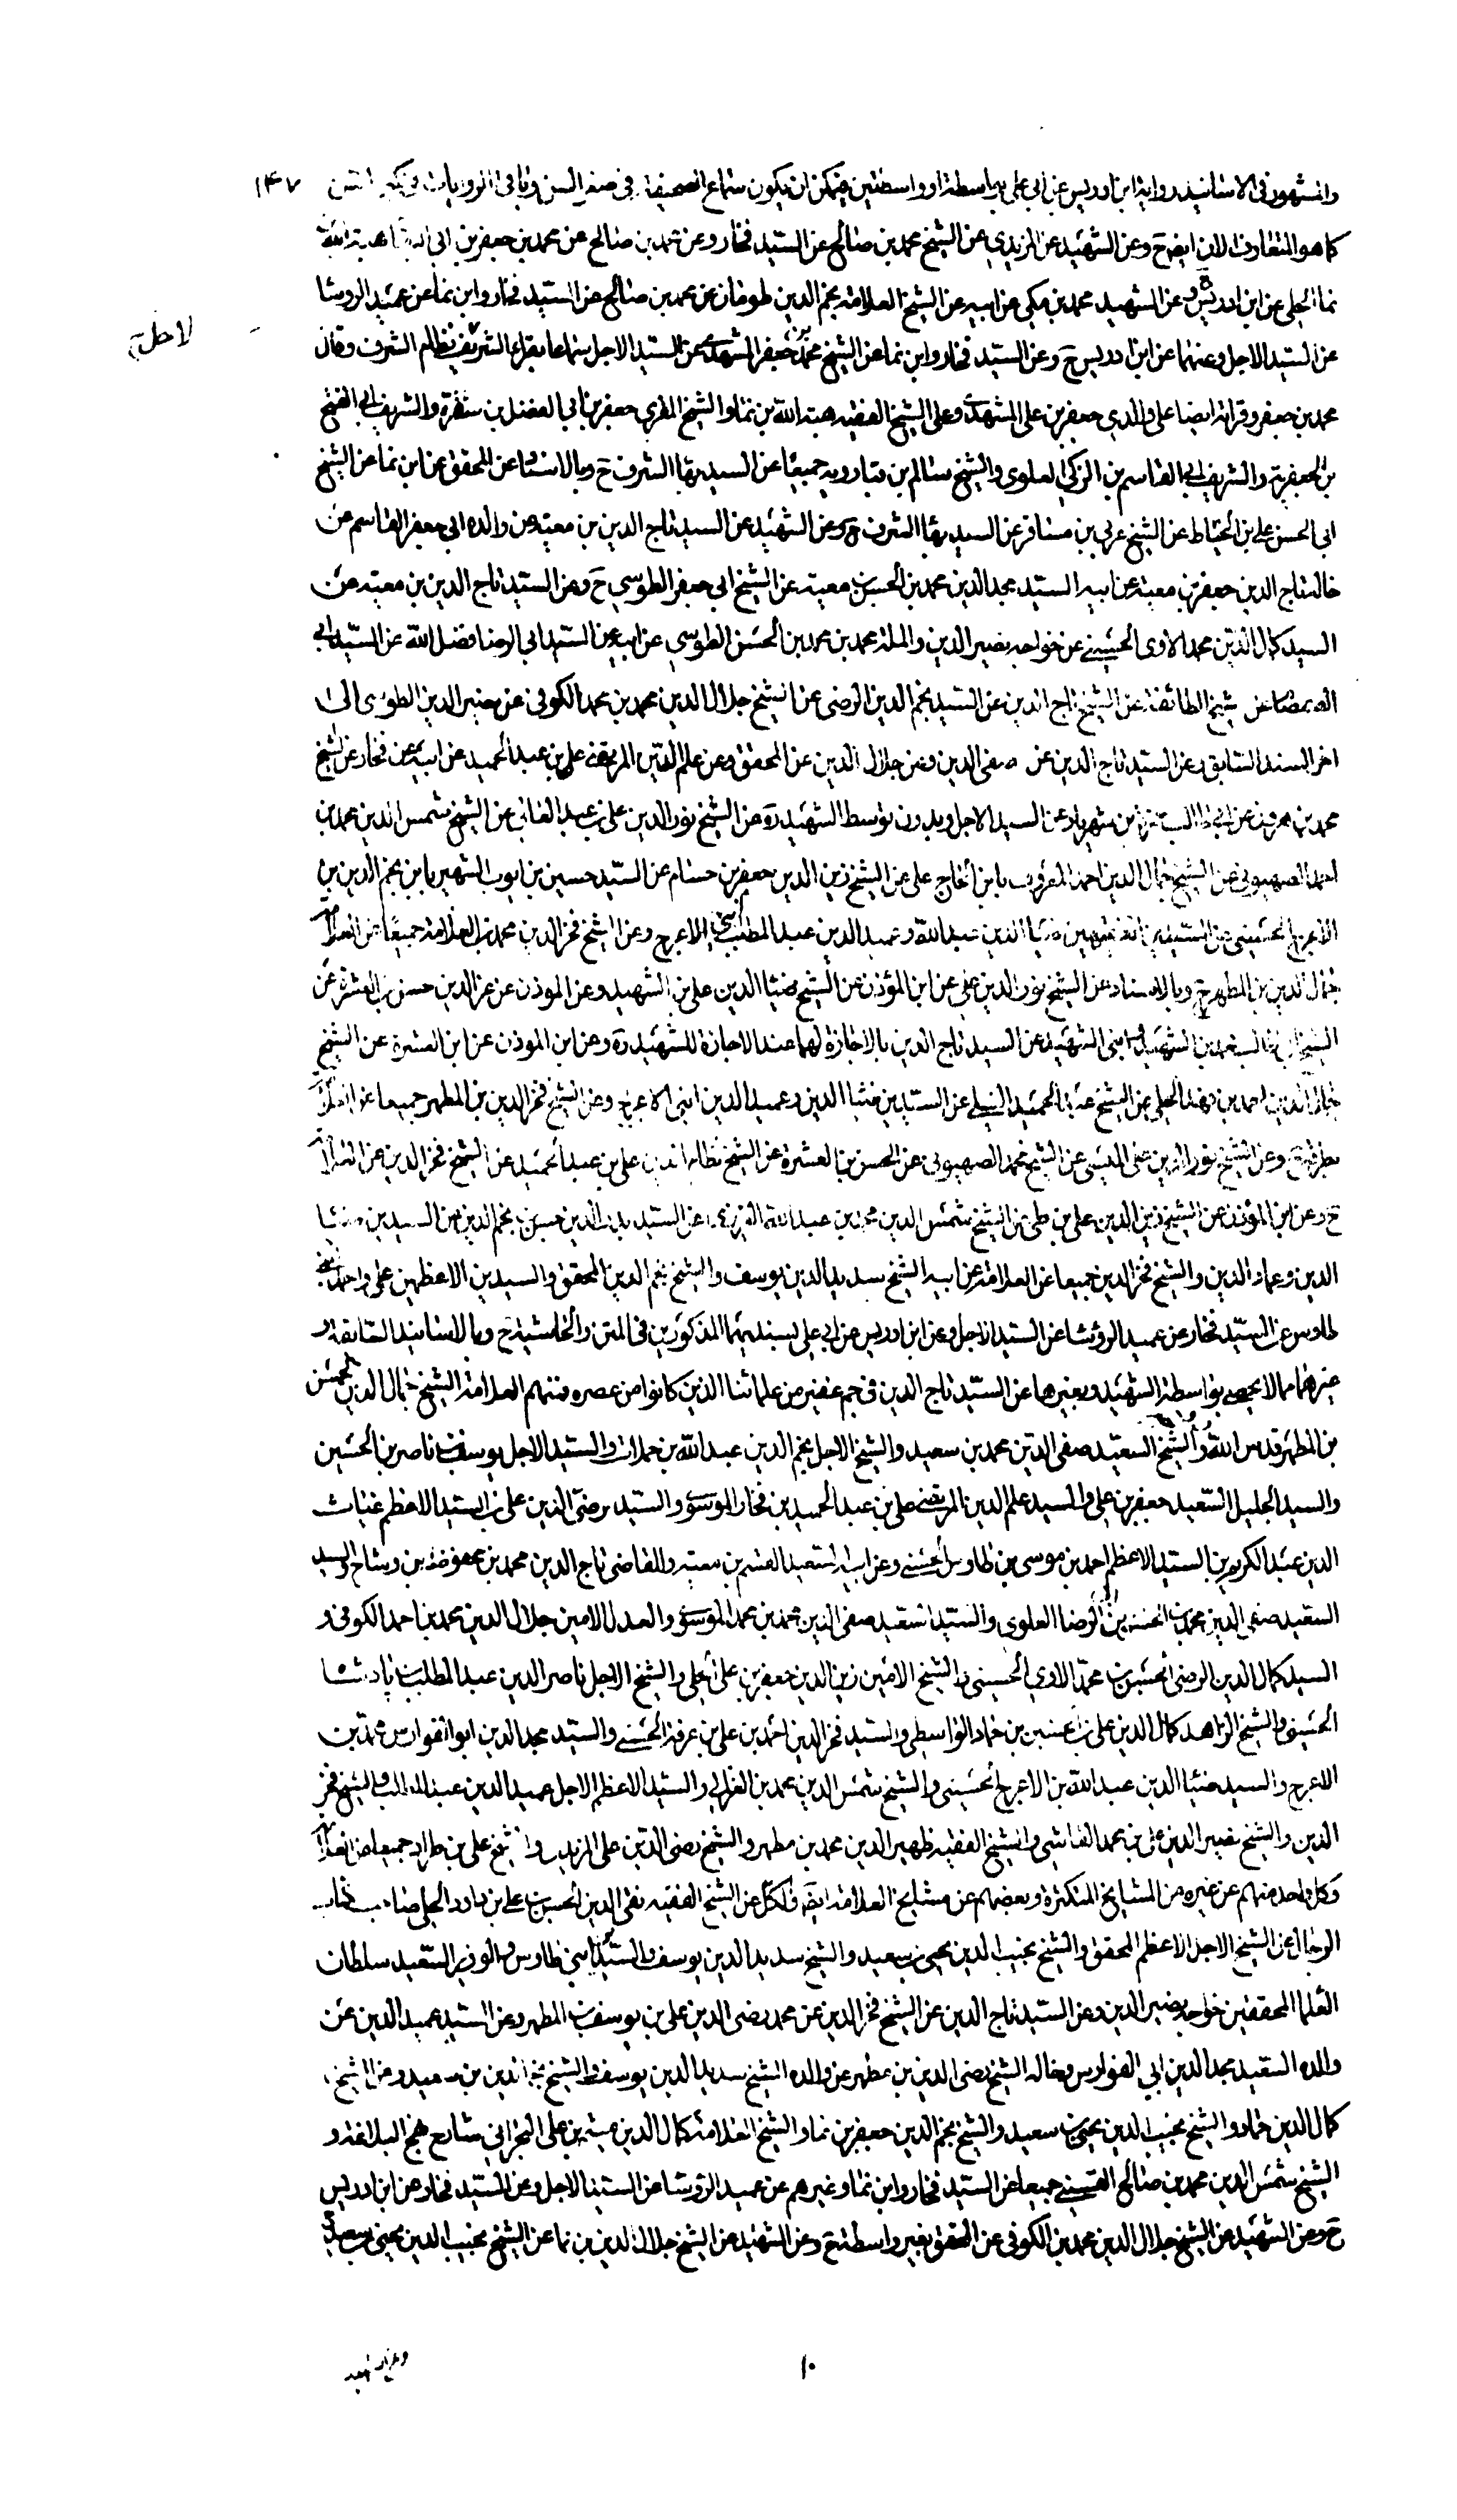 والمشهور في الاسانيد رواية ابن ادريس عن ابي علي بواسطة او واسطتين فيمكن ان يكون سماع الصحيفة في صغر السن وباقي الروايات في كبر السن ١٤٧
كما هو المتعارف الان ايضا ح وعن الشهيد عن المزيدي عن الشيخ محمد بن صالح عن السيد فخار وعن محمد بن صالح عن محمد بن جعفر بن ابي البقا هبة الله
نما الحلي عن ابن ادريس و عن الشهيد محمد بن مكي عن ابيه عن الشيخ العلامة نجم الدين طومان عن محمد بن صالح عن السيد فخار وابن نما عن عميد الروسا
عن السيد الاجل وعنهما عن ابن ادريس ح وعن السيد فخار وابن نما عن الشيخ محمد بن جعفر المشهدي عن السيد الاجل سماعا بقراءة الشريف نظام الشرف وقال
لاجل
محمد بن جعفر وقراته ايضا على والدي جعفر بن علي المشهدي وعلى الشيخ الفقيه هبة الله بن نما والشيخ المقري جعفر بن ابي الفضل بن شقرة والشريف ابي الفتح
بن الجعفرية والشريف ابي القاسم بن الزكي العلوي والشيخ سالم بن قبارويه جميعا عن السيد بها الشرف ح وبالاسناد عن المحقق عن ابن نما عن الشيخ
ابي الحسن علي بن الخياط عن الشيخ عربي بن مسافر عن السيد بها الشرف ح وعن الشهيد عن السيد تاج الدين بن معية عن والده ابي جعفر القاسم عن
خاله تاج الدين جعفر بن معية عن ابيه السيد مجد الدين محمد بن الحسن بن معية عن الشيخ ابي جعفر الطوسي ح وعن السيد تاج الدين بن معية عن
السيد كمال الدين محمد الاوي الحسيني عن خواجه نصير الدين والملة محمد بن محمد بن الحسن الطوسي عن ابيه عن السيد ابي الرضا فضل الله عن السيد ابي
الصمصام عن شيخ الطائفة وعن الشيخ تاج الدين عن السيد نجم الدين الرضي عن الشيخ جلال الدين محمد بن محمد الكوفي عن نصير الدين الطوسي الى
اخر السند السابق وعن السيد تاج الدين عن صفي الدين وعن جلال الدين عن المحقق وعن علم الدين المرتضى علي بن عبد الحميد عن ابيه عن فخار عن الشيخ
محمد بن هرون عن ابي طالب حمزة بن شهريار عن السيد الاجل وبدون توسط الشهيد ره عن الشيخ نور الدين علي بن عبد العالي عن الشيخ شمس الدين محمد بن
احمد الصهيوني عن الشيخ جمال الدين احمد المعروف بابن الحاج علي عن الشيخ زين الدين جعفر بن حسام عن السيد حسين بن ايوب الشهير بابن نجم الدين بن
الاعرج الحسيني عن السيدين الفقيهين ضيا الدين عبد الله وعميد الدين عبد المطلب ابني الاعرج وعن الشيخ فخر الدين محمد بن العلامة جميعا عن العلامة
جمال الدين بن المطهر ح وبالاسناد عن الشيخ نور الدين علي عن ابن المؤذن عن الشيخ ضيا الدين علي بن الشهيد وعن الموذن عن عز الدين حسن بن العشرة عن
الشيخ ابي طالب محمد بن الشهيد عن السيد تاج الدين بالاجازة لهما عند الاجازة للشهيد ره وعن ابن الموذن عن ابن العشرة عن الشيخ
جمال الدين احمد بن فهد الحلي عن الشيخ عبد الحميد النيلي عن السيدين ضيا الدين وعميد الدين ابني الاعرج وعن الشيخ فخر الدين بن المطهر جميعا عن العلامة
بطرقه ح وعن الشيخ نور الدين علي الميسي عن الشيخ محمد الصهيوني عن الحسن بن العشرة عن الشيخ نظام الدين علي بن عبد الحميد عن الشيخ فخر الدين عن العلامة
ح وعن ابن المؤذن عن الشيخ زين الدين علي بن طي عن الشيخ شمس الدين محمد بن عبد الله العريضي عن السيد بدر الدين حسن بن نجم الدين عن السيدين ضيا
الدين وعماد الدين والشيخ فخر الدين جميعا عن العلامة عن ابيه الشيخ سديد الدين يوسف والشيخ نجم الدين المحقق والسيدين الاعظمين علي واحمد ابني
طاوس عن السيد فخار عن عميد الروسا عن السيد الاجل وعن ابن ادريس عن ابي علي بسنديهما المذكورين في المتن والحاشية ح وبالاسانيد السابقة و
غيرهما مما لا يحصى بواسطة الشهيد وبغيرها عن السيد تاج الدين في جم غفير من علمائنا الذين كانوا من عصره فمنهم العلامة الشيخ جمال الدين الحسن
بن المطهر قدس الله والشيخ السعيد صفي الدين محمد بن سعيد والشيخ الاجل نجم الدين عبد الله بن حملات والسيد الاجل يوسف بن ناصر بن الحسين
والسيد الجليل السعيد جعفر بن علي والسيد علم الدين المرتضى علي بن عبد الحميد بن فخار الموسوي والسيد رضي الدين علي بن السيد الاعظم غياث
الدين عبد الكريم بن السيد الاعظم احمد بن موسى بن طاوس الحسني وعن ابيه السعيد القسم بن معية والقاضي تاج الدين محمد بن محفوظ بن وشاح والسيد
السعيد صفي الدين محمد بن الحسن بن ابي الرضا العلوي والسيد السعيد صفي الدين محمد بن محمد الموسوي والعدل الامين جلال الدين محمد بن احمد الكوفي و
السيد كمال الدين الرضي الحسن بن محمد الاوي الحسيني والشيخ الامين زين الدين جعفر بن علي الحلي والشيخ الاجل ناصر الدين عبد المطلب بن پادشاه
الحسيني والشيخ الزاهد كمال الدين علي بن حسين بن حماد الواسطي والسيد فخر الدين احمد بن علي بن عرفة الحسني والسيد مجد الدين ابو الفوارس محمد بن
الاعرج والسيد ضيا الدين عبد الله بن الاعرج الحسيني والشيخ شمس الدين محمد بن الغزالي والسيد الاعظم الاجل عميد الدين عبد المطلب والشيخ فخر
الدين والشيخ نصير الدين علي بن محمد القاشي والشيخ الفقيه ظهير الدين محمد بن مطهر والشيخ رضي الدين علي المزيدي والشيخ علي بن طراد جميعا عن العلامة
وكل واحد منهم عن غيره من المشايخ المتكثرة وبعضهم عن مشايخ العلامة ايضا والكل عن الشيخ الفقيه تقي الدين الحسن بن علي بن داود الحلي صاحب كتاب
الرجال عن الشيخ الاجل الاعظم المحقق والشيخ نجيب الدين يحيى بن سعيد والشيخ سديد الدين يوسف والسيدين ابني طاوس والوزير السعيد سلطان
العلما المحققين خواجه نصير الدين وعن السيد تاج الدين عن الشيخ فخر الدين عن محمد رضي الدين علي بن يوسف بن المطهر وعن السيد عميد الدين عن
والده السعيد مجد الدين ابي الفوارس وخاله الشيخ رضي الدين بن مطهر عن والده الشيخ سديد الدين يوسف والشيخ نجم الدين بن سعيد وعن الشيخ
كمال الدين حماد والشيخ نجيب الدين يحيى بن سعيد والشيخ نجم الدين جعفر بن نما والشيخ العلامة كمال الدين ميثم بن علي البحراني شارح نهج البلاغة و
الشيخ شمس الدين محمد بن صالح القسيني جميعا عن السيد فخار وابن نما وغيرهم عن عميد الروسا عن السيد الاجل وعن السيد فخار عن ابن ادريس
ح وعن الشهيد عن الشيخ جلال الدين محمد بن الكوفي عن المحقق بغير واسطة ح وعن الشهيد عن الشيخ جلال الدين بن نما عن الشيخ نجيب الدين يحيى بن سعيد
١٠